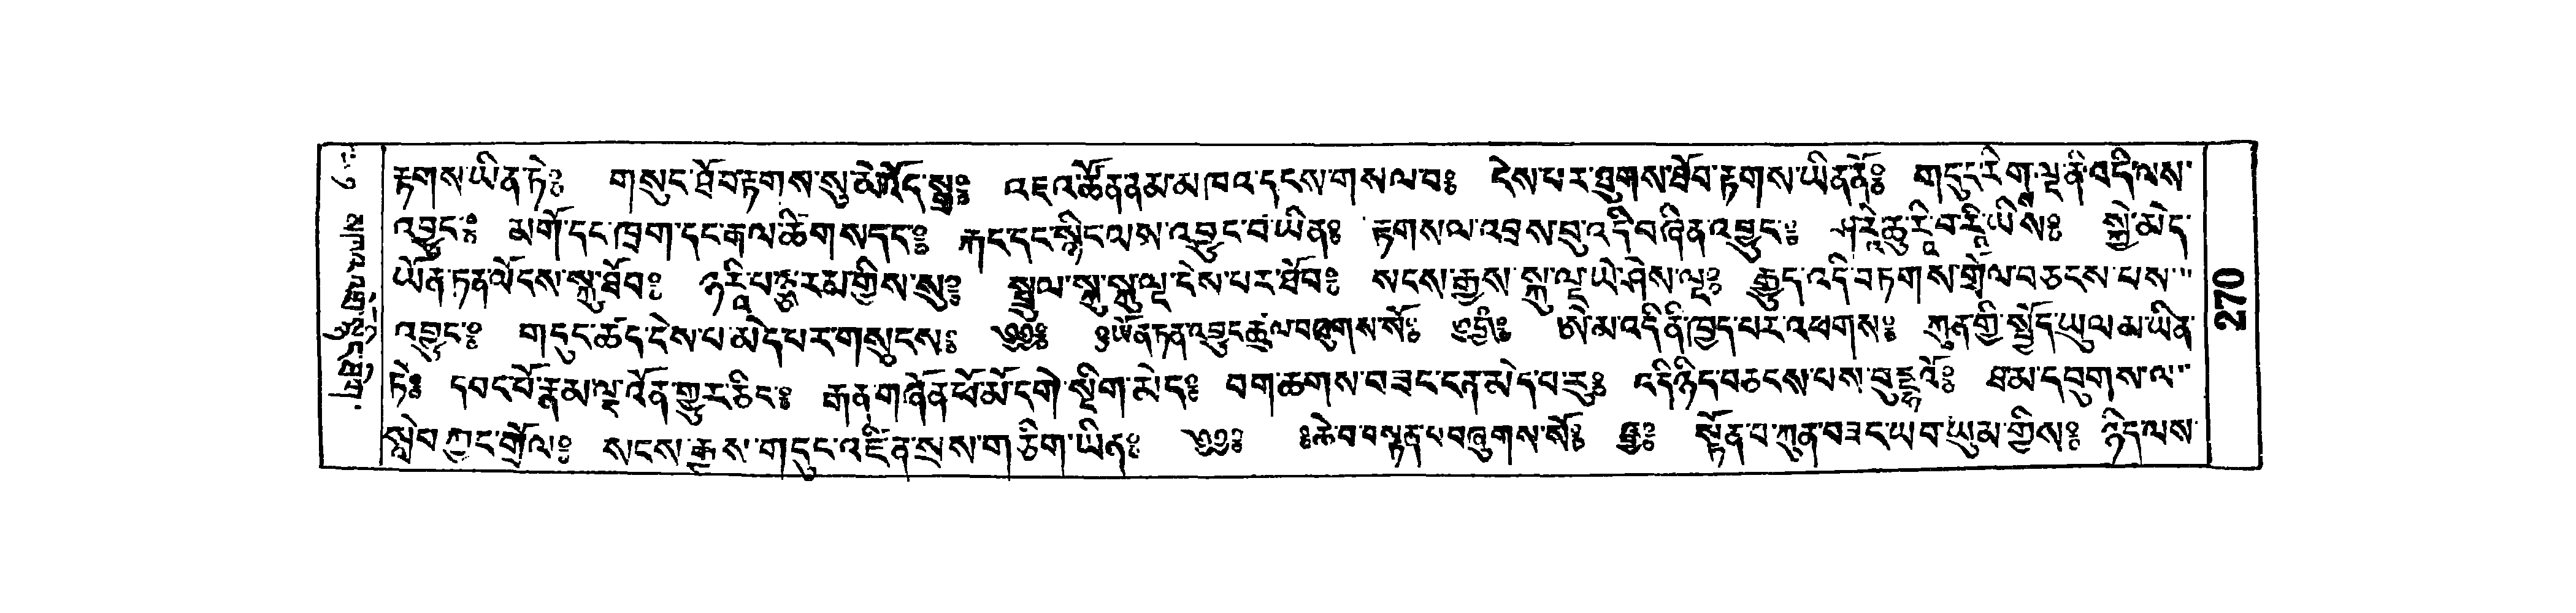 རྟགས་ཡིན་ཏེ༔ གསུང་ཐོབ་རྟགས་སུ་མེ་འོད་སྣ༔ འཇའ་ཚོན་ནམ་མཁའ་དྭངས་གསལ་བ༔ ངེས་པར་ཐུགས་ཐོབ་རྟགས་ཡིན་ནོ༔ གདུང་རིགས་ལྔ་ནི་འདི་ལས་
འབྱུང་༔ མགོ་དང་ཁྲག་དང་རྒལ་ཚིགས་དང་༔ རྐང་དང་སྙིང་ལས་འབྱུང་བ་ཡིན༔ རྟགས་ལ་འབྲས་བུ་འདི་བཞིན་འབྱུང་༔ ཤ་རཱི་ཆུ་རཱི་བ་རཱི་ཡིས༔ སྐྱེ་མེད་
ཡོན་ཏན་ལོངས་སྐུ་ཐོབ༔ ཉ་རཱི་པཉྩ་རམ་གྱིས་སུ༔ སྤྲུལ་སྐུ་སྐུ་ལྔ་ངེས་པར་ཐོབ༔ སངས་རྒྱས་སྐུ་ལྔ་ཡེ་ཤེས་ལྔ༔ རྒྱུད་འདི་བཏགས་གྲོལ་བཅངས་པས་
འབྱུང་༔ གདུང་ཚད་ངེས་པ་མེད་པར་གསུངས༔ ༄༅༔ ཡོན་ཏན་འབྱུང་ཚུལ་བཞུགས་སོ༔ ཨེ་མ་འདི་ནི་ཁྱད་པར་འཕགས༔ ཀུན་གྱི་སྤྱོད་ཡུལ་མ་ཡིན་
ཏེ༔ དབང་པོ་རྣམ་ལྔ་འོན་ཀྱུར་ཅིང་༔ རྒན་གཞོན་ཕོ་མོ་དགེ་སྡིག་མེད༔ བག་ཆགས་བཟང་ངན་མེད་པ་རུ༔ འདི་ཉིད་བཅངས་པས་བུདྡྷའོ༔ ཐམ་དབུགས་ལ་
སླེབ་ཀྱང་གྲོལ༔ སངས་རྒྱས་གདུང་འཛིན་སྲས་གཅིག་ཡིན༔ ༄༅༔ ཆེ་བ་བསྟན་པ་བཞུགས་སོ༔ སྟོན་པ་ཀུན་བཟང་ཡབ་ཡུམ་གྱིས༔ ཉིད་ལས་
270